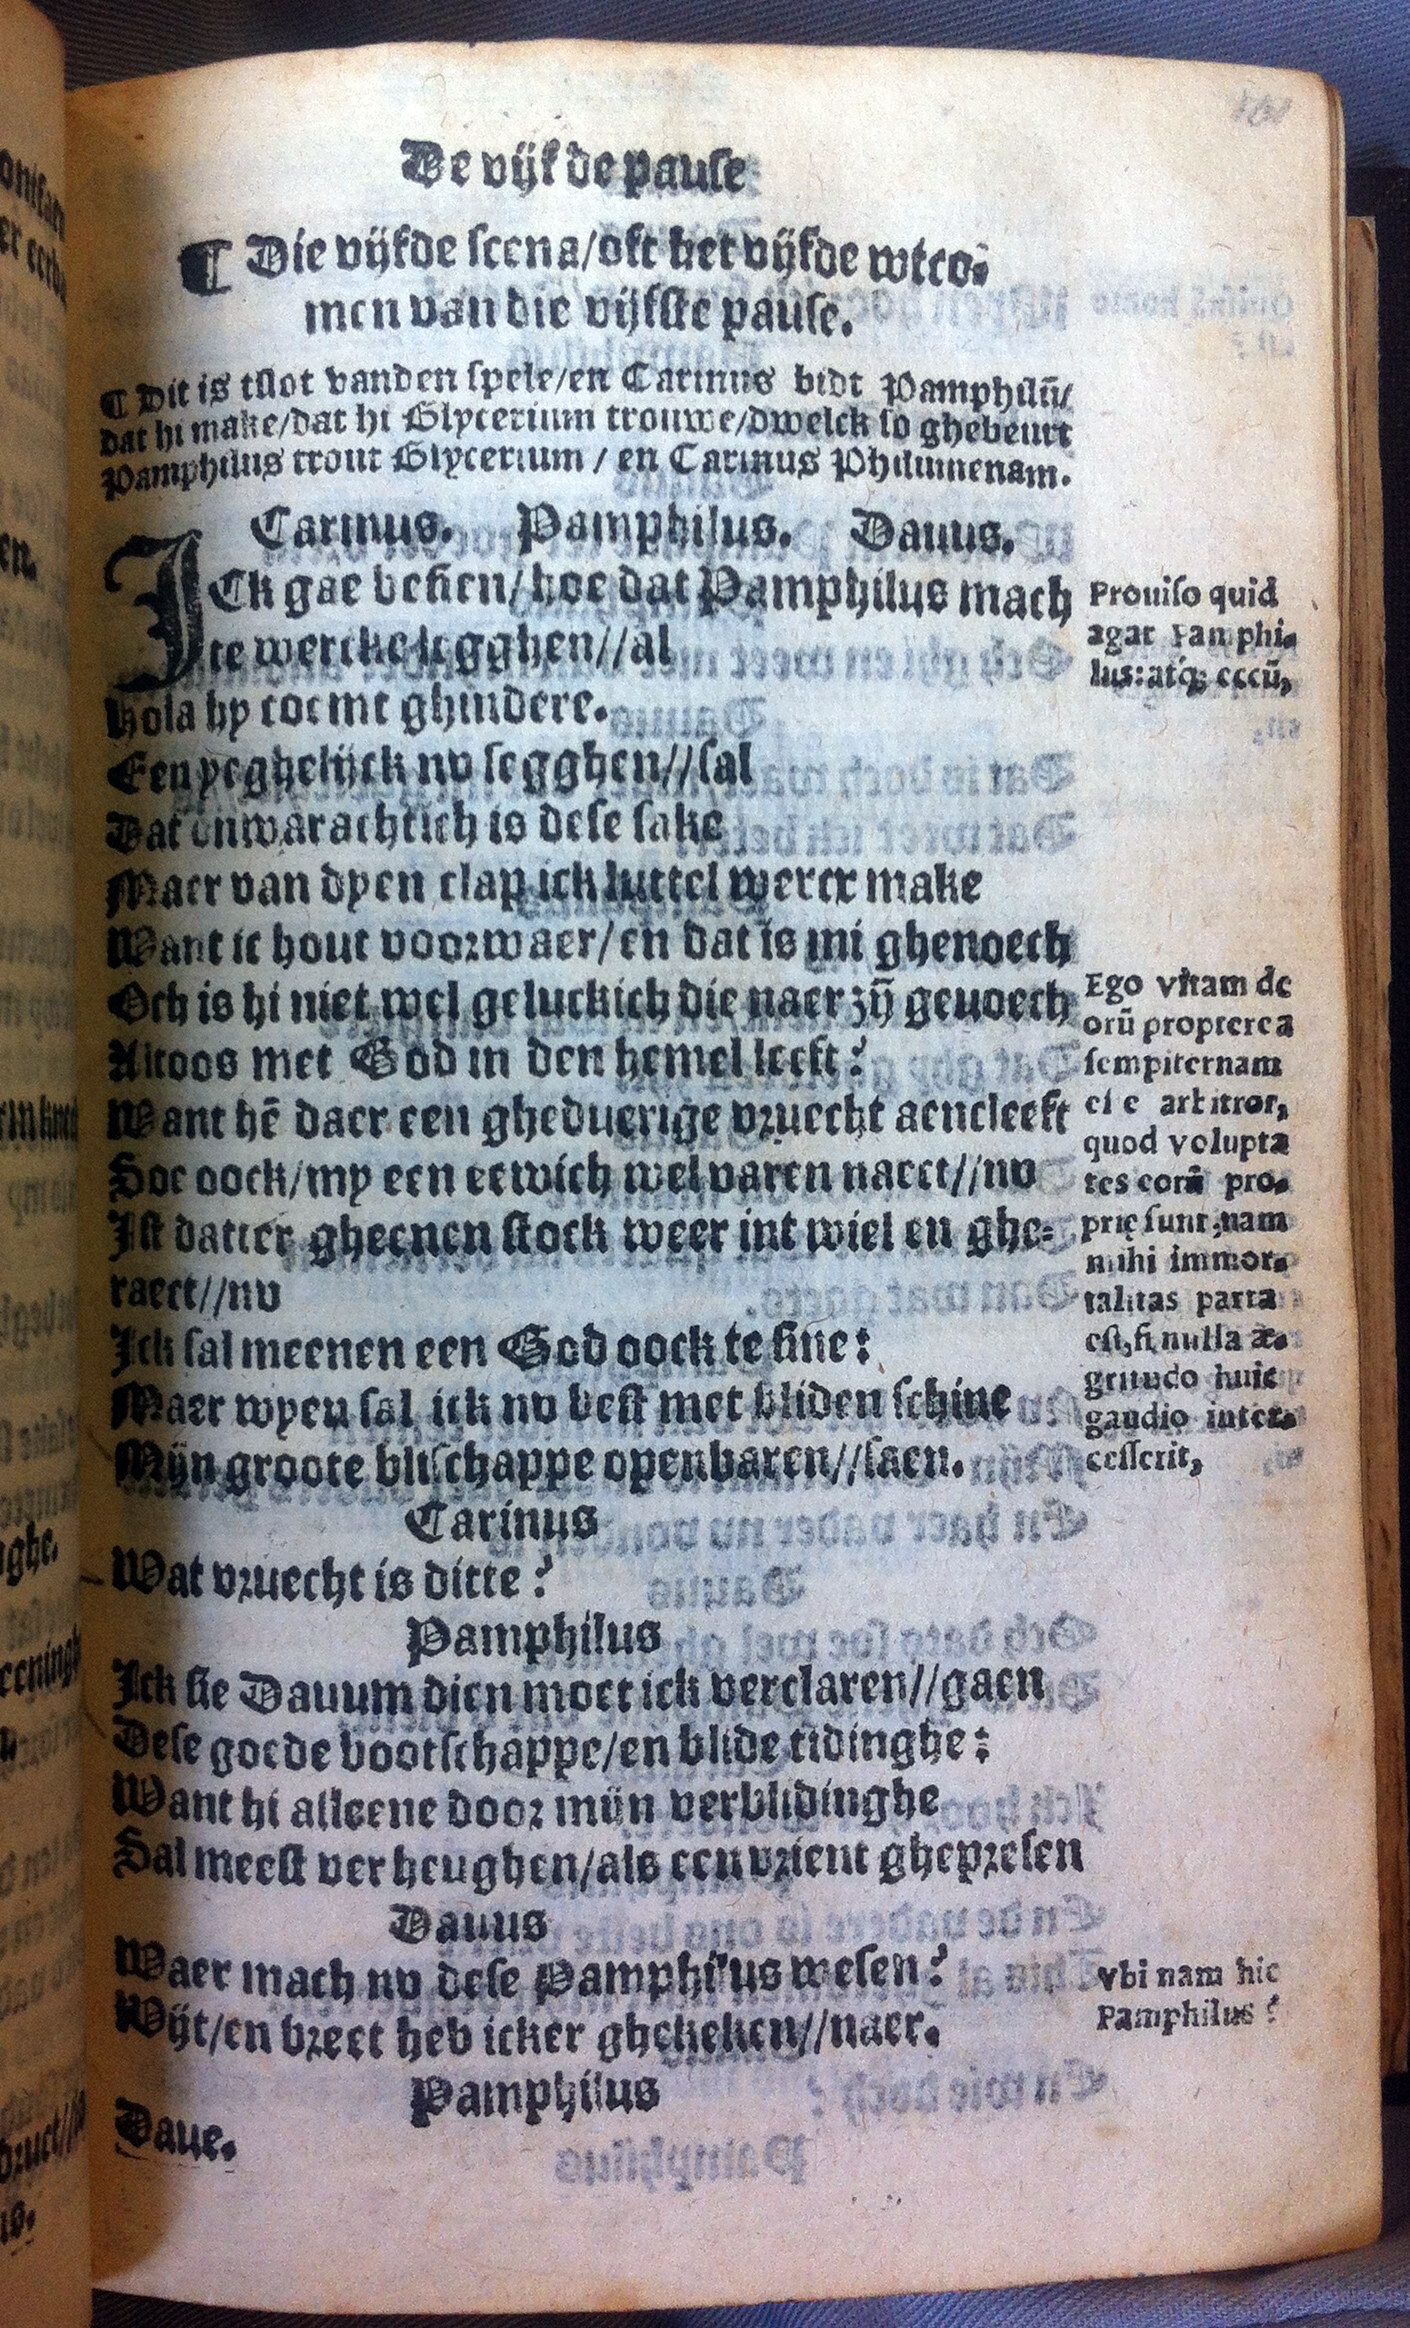 De vijfde pause
¶ Die vijfde scena/oft het vijfde wtco-
men van die vijfste pause.
¶ Dit is tslot vanden spele/en Carinus bidt Pamphilū/
dat hi make/dat hi Glycerium trouwe/dwelck so ghebeurt
Pamphilus trout Glycerium / en Carinus Philumenam.
Carinus. Pamphilus. Dauus.
ICk gae besien/hoe dat Pamphilus mach
te wercke legghen//al
Hola hy coemt ghindere.
Een yeghelijck nv segghen//sal
Dat onwarachtich is dese sake
Maer van dyen clap ick luttel wercx make
Want ic hout voorwaer/en dat is mi ghenoech
Och is hi niet wel geluckich die naer zijn geuoech
Altoos met God in den hemel leeft?
Want hē daer een gheduerige vruecht aencleeft
Soe oock/my een eewich welvaren naect//nv
Ist datter gheenen stock weer int wiel en ghe-
raect//nv
Ick sal meenen een God oock te sine:
Maer wyen sal ick nv best met bliden schine
Mijn groote blischappe openbaren//saen.
Carinus
Wat vruecht is ditte?
Pamphilus
Ick sie Dauum dien moet ick verclaren//gaen
Dese goede bootschappe/en blide tidinghe:
Want hi alleene door mijn verblidinghe
Sal meest verheughen/als een vrient ghepresen
Dauus
Waer mach nv dese Pamphilus wesen?
Wijt/en breet heb icker ghekeken//naer.
Pamphilus
Daue.
Prouiso quid
agat Pamphi-
lus: atq; eccū,
Ego vitam de
orū propterea
sempiternam
esse arbitror,
quod volupta
tes eorū pro-
prię sunt, nam
mihi immor-
talitas parta
est, si nulla æ-
gritudo huic
gaudio inter-
cesserit,
Vbi nam hic
Pamphilus?